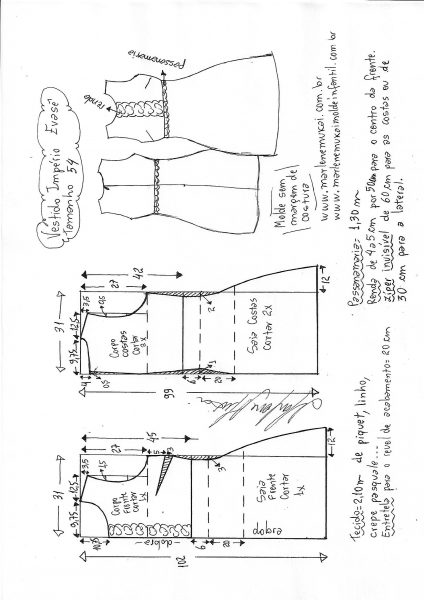 Vestido Império Evasê
Tamanho 54
passanamaria
renda
Molde sem
margem de
costura
www.marlenemukai.com.br
www.marlenemukaimoldeinfantil.com.br
Passanamaria = 1,30 m
Renda de 4 a 5 cm por 50cm para o centro da frente.
Ziper invisível de 60 cm para as costas ou de
30 cm para a lateral.
42
27
12
31
12,5
9,75
3,5
0,5
Corpo
costas
cortar
2x
2
1
6
20
Saia Costas
Cortar 2x
4
0,5
99
45
27
5
3
12
31
12,5
9,75
3,5
1,5
Corpo
Frente
cortar
1x
3
6
20
Saia
Frente
Cortar
1x
dobra
dobra
102
Tecido = 2,10m de piquet, linho,
crepe pasquale...
Entretela para o revel de acabamento = 20 cm